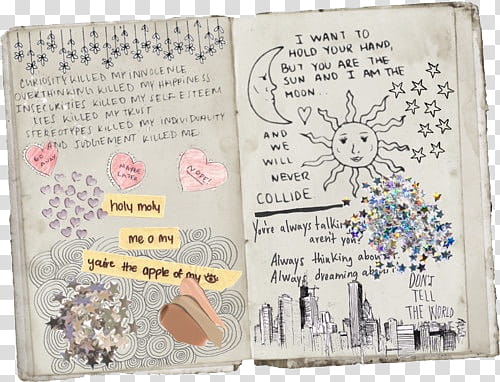 CURIOSITY KILLED MY INNOCENCE
OVERTHINKING KILLED MY HAPPINESS
INSECURITIES KILLED MY SELF ESTEEM
LIES KILLED MY TRUST
STEREOTYPES KILLED MY INDIVIDUALITY
AND JUDGEMENT KILLED ME.
GO AWAY
MAYBE LATER
NOPE!
holy moly
me o my
you're the apple of my
I WANT TO
HOLD YOUR HAND,
BUT YOU ARE THE
SUN AND I AM THE
MOON...
AND
WE
WILL
NEVER
COLLIDE
You're always talking
aren't you?
Always thinking about
Always dreaming about
DON'T
TELL
THE WORLD